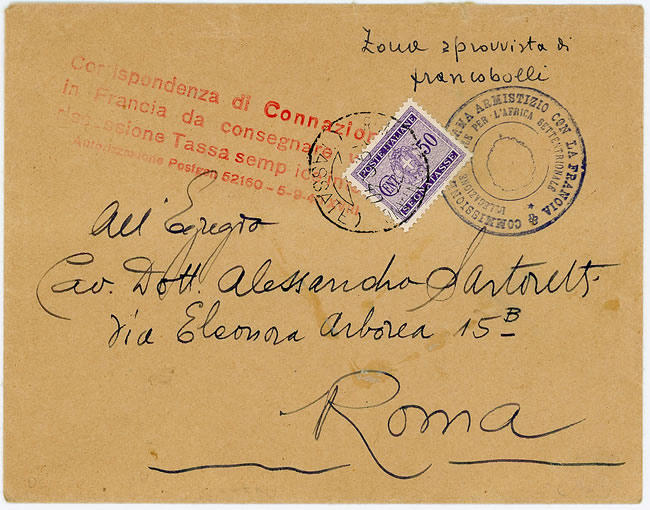 Zona sprovvista di
francobolli
Corrispondenza di Connazion
in Francia da consegnare
Tassa semp
Autorizzazione 52160 - 5-9-4
POSTE ITALIANE
50
SEGNATASSE
(TASSATE)
ARMISTIZIO CON LA FRANCIA
COMMISSIONE
PER L'AFRICA SETTENTRIONALE
DELEGAZIONE
All' Egregio
Cav. Dott. Alessandro Sartoretti
Via Eleonora Arborea 15B
Roma